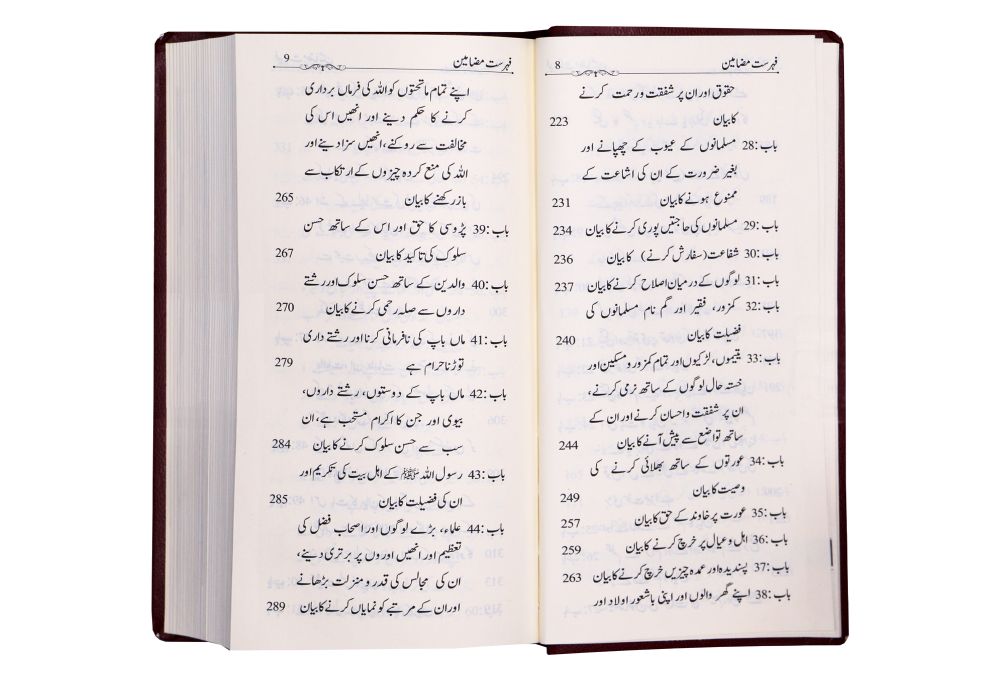 فہرست مضامین 8
حقوق اور ان پر شفقت ورحمت کرنے
کا بیان 223
باب:28 مسلمانوں کے عیوب کے چھپانے اور
بغیر ضرورت کے ان کی اشاعت کے
ممنوع ہونے کا بیان 231
باب:29 مسلمانوں کی حاجتیں پوری کرنے کا بیان 234
باب:30 شفاعت (سفارش کرنے) کا بیان 236
باب:31 لوگوں کے درمیان اصلاح کرنے کا بیان 237
باب:32 کمزور، فقیر اور گم نام مسلمانوں کی
فضیلت کا بیان 240
باب:33 یتیموں، لڑکیوں اور تمام کمزور و مسکین اور
خستہ حال لوگوں کے ساتھ نرمی کرنے،
ان پر شفقت و احسان کرنے اور ان کے
ساتھ تواضع سے پیش آنے کا بیان 244
باب:34 عورتوں کے ساتھ بھلائی کرنے کی
وصیت کا بیان 249
باب:35 عورت پر خاوند کے حق کا بیان 257
باب:36 اہل و عیال پر خرچ کرنے کا بیان 259
باب:37 پسندیدہ اور عمدہ چیزیں خرچ کرنے کا بیان 263
باب:38 اپنے گھر والوں اور اپنی باشعور اولاد اور
فہرست مضامین 9
اپنے تمام ماتحتوں کو اللہ کی فرماں برداری
کرنے کا حکم دینے اور انھیں اس کی
مخالفت سے روکنے، انھیں سزا دینے اور
اللہ کی منع کردہ چیزوں کے ارتکاب سے
باز رکھنے کا بیان 265
باب:39 پڑوسی کا حق اور اس کے ساتھ حسن
سلوک کی تاکید کا بیان 267
باب:40 والدین کے ساتھ حسن سلوک اور رشتے
داروں سے صلہ رحمی کرنے کا بیان 270
باب:41 ماں باپ کی نافرمانی کرنا اور رشتے داری
توڑنا حرام ہے 279
باب:42 ماں باپ کے دوستوں، رشتے داروں،
بیوی اور جن کا اکرام مستحب ہے، ان
سب سے حسن سلوک کرنے کا بیان 284
باب:43 رسول اللہ ﷺ کے اہل بیت کی تکریم اور
ان کی فضیلت کا بیان 285
باب:44 علماء، بڑے لوگوں اور اصحاب فضل کی
تعظیم اور انھیں اوروں پر برتری دینے،
ان کی مجالس کی قدر و منزلت بڑھانے
اور ان کے مرتبے کو نمایاں کرنے کا بیان 289